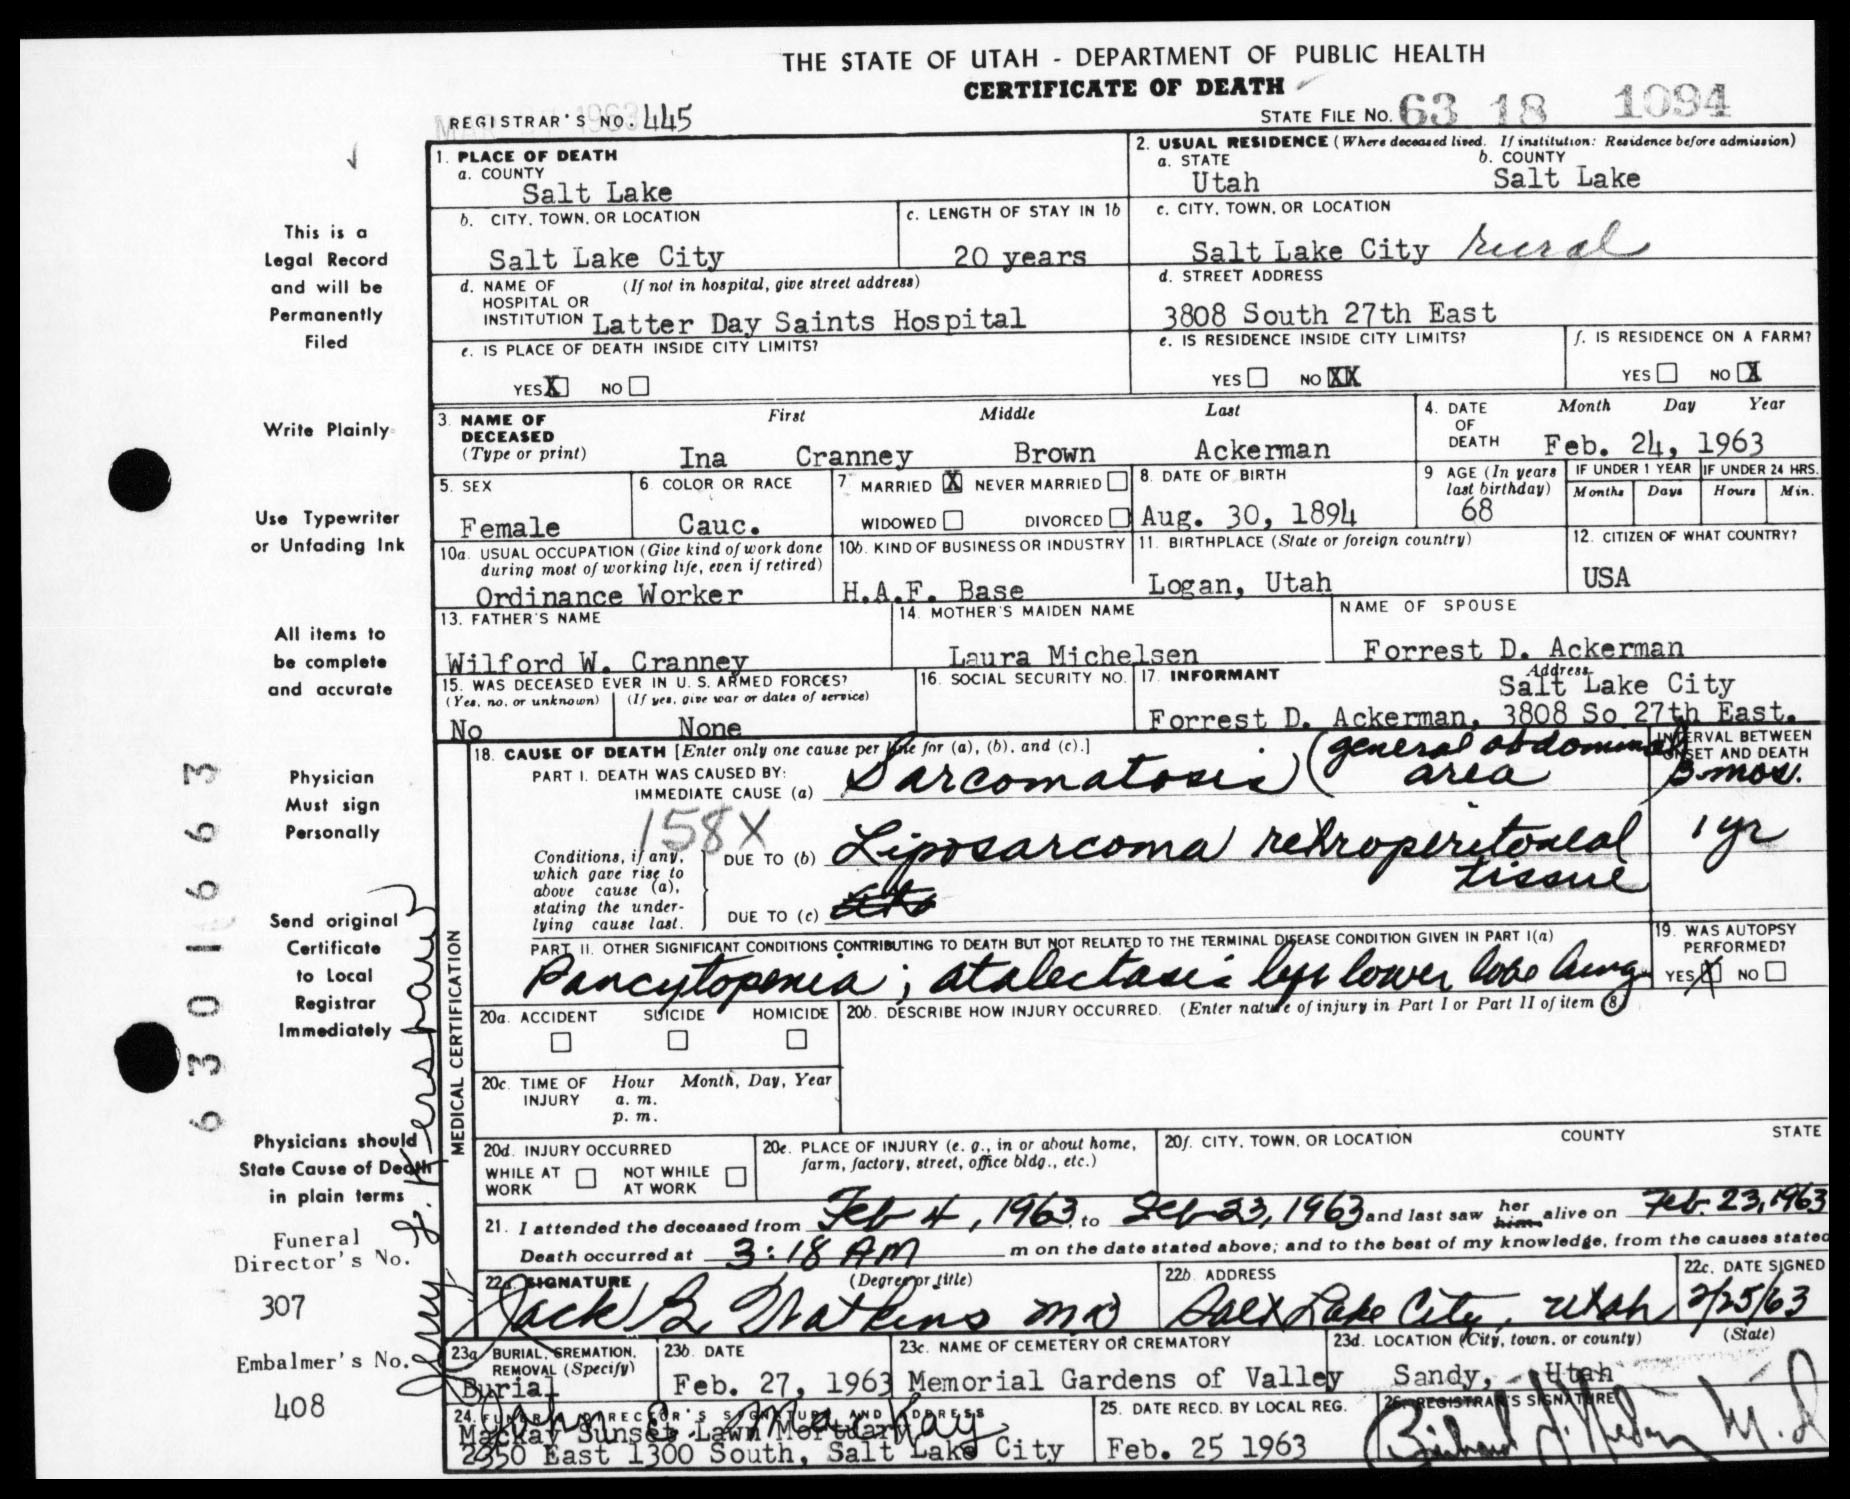 THE STATE OF UTAH - DEPARTMENT OF PUBLIC HEALTH
CERTIFICATE OF DEATH
REGISTRAR'S NO. 445
STATE FILE NO. 63 18 1094
1. PLACE OF DEATH
a. COUNTY
Salt Lake
2. USUAL RESIDENCE (Where deceased lived. If institution: Residence before admission)
a. STATE b. COUNTY
Utah Salt Lake
b. CITY, TOWN, OR LOCATION
Salt Lake City
c. LENGTH OF STAY IN 1b
20 years
c. CITY, TOWN, OR LOCATION
Salt Lake City rural
d. NAME OF (If not in hospital, give street address)
HOSPITAL OR
INSTITUTION Latter Day Saints Hospital
d. STREET ADDRESS
3808 South 27th East
e. IS PLACE OF DEATH INSIDE CITY LIMITS?
YES X NO
e. IS RESIDENCE INSIDE CITY LIMITS?
YES NO XX
f. IS RESIDENCE ON A FARM?
YES NO X
3. NAME OF DECEASED (Type or print)
First Middle Last
Ina Cranney Brown Ackerman
4. DATE OF DEATH
Month Day Year
Feb. 24, 1963
5. SEX
Female
6. COLOR OR RACE
Cauc.
7. MARRIED X NEVER MARRIED
WIDOWED DIVORCED
8. DATE OF BIRTH
Aug. 30, 1894
9 AGE (In years last birthday)
68
IF UNDER 1 YEAR IF UNDER 24 HRS.
Months Days Hours Min.
10a. USUAL OCCUPATION (Give kind of work done during most of working life, even if retired)
Ordinance Worker
10b. KIND OF BUSINESS OR INDUSTRY
H.A.F. Base
11. BIRTHPLACE (State or foreign country)
Logan, Utah
12. CITIZEN OF WHAT COUNTRY?
USA
13. FATHER'S NAME
Wilford W. Cranney
14. MOTHER'S MAIDEN NAME
Laura Michelsen
NAME OF SPOUSE
Forrest D. Ackerman
15. WAS DECEASED EVER IN U. S. ARMED FORCES?
(Yes, no, or unknown) (If yes, give war or dates of service)
No None
16. SOCIAL SECURITY NO.
17. INFORMANT Address
Salt Lake City
Forrest D. Ackerman, 3808 So 27th East.
MEDICAL CERTIFICATION
18. CAUSE OF DEATH [Enter only one cause per line for (a), (b), and (c).]
INTERVAL BETWEEN
ONSET AND DEATH
PART I. DEATH WAS CAUSED BY:
IMMEDIATE CAUSE (a) Sarcomatosis (general abdominal area) 3 mos.
158X
Conditions, if any, which gave rise to above cause (a), stating the underlying cause last.
DUE TO (b) Liposarcoma retroperitoneal tissue 1 yr
DUE TO (c)
PART II. OTHER SIGNIFICANT CONDITIONS CONTRIBUTING TO DEATH BUT NOT RELATED TO THE TERMINAL DISEASE CONDITION GIVEN IN PART I(a)
Pancytopenia; atalectasis left lower lobe lung
19. WAS AUTOPSY PERFORMED?
YES X NO
20a. ACCIDENT SUICIDE HOMICIDE
20b. DESCRIBE HOW INJURY OCCURRED. (Enter nature of injury in Part I or Part II of item 18.)
20c. TIME OF INJURY Hour Month, Day, Year
a. m.
p. m.
20d. INJURY OCCURRED
WHILE AT WORK NOT WHILE AT WORK
20e. PLACE OF INJURY (e. g., in or about home, farm, factory, street, office bldg., etc.)
20f. CITY, TOWN, OR LOCATION COUNTY STATE
21. I attended the deceased from Feb 4, 1963, to Feb 23, 1963 and last saw her him alive on Feb. 23, 1963
Death occurred at 3:18 AM m on the date stated above; and to the best of my knowledge, from the causes stated
22a SIGNATURE (Degree or title)
Jack B Watkins MD
22b. ADDRESS
Salt Lake City, Utah
22c. DATE SIGNED
2/25/63
23a BURIAL, CREMATION, REMOVAL (Specify)
Burial
23b. DATE
Feb. 27, 1963
23c. NAME OF CEMETERY OR CREMATORY
Memorial Gardens of Valley
23d. LOCATION (City, town, or county) (State)
Sandy, Utah
24. FUNERAL DIRECTOR'S SIGNATURE AND ADDRESS
John E. MacKay
Mackay Sunset Lawn Mortuary
2350 East 1300 South, Salt Lake City
25. DATE RECD. BY LOCAL REG.
Feb. 25 1963
26. REGISTRAR'S SIGNATURE
M.D
This is a
Legal Record
and will be
Permanently
Filed
Write Plainly
Use Typewriter
or Unfading Ink
All items to
be complete
and accurate
Physician
Must sign
Personally
Send original
Certificate
to Local
Registrar
Immediately
Physicians should
State Cause of Death
in plain terms
Funeral
Director's No.
307
Embalmer's No.
408
6301663